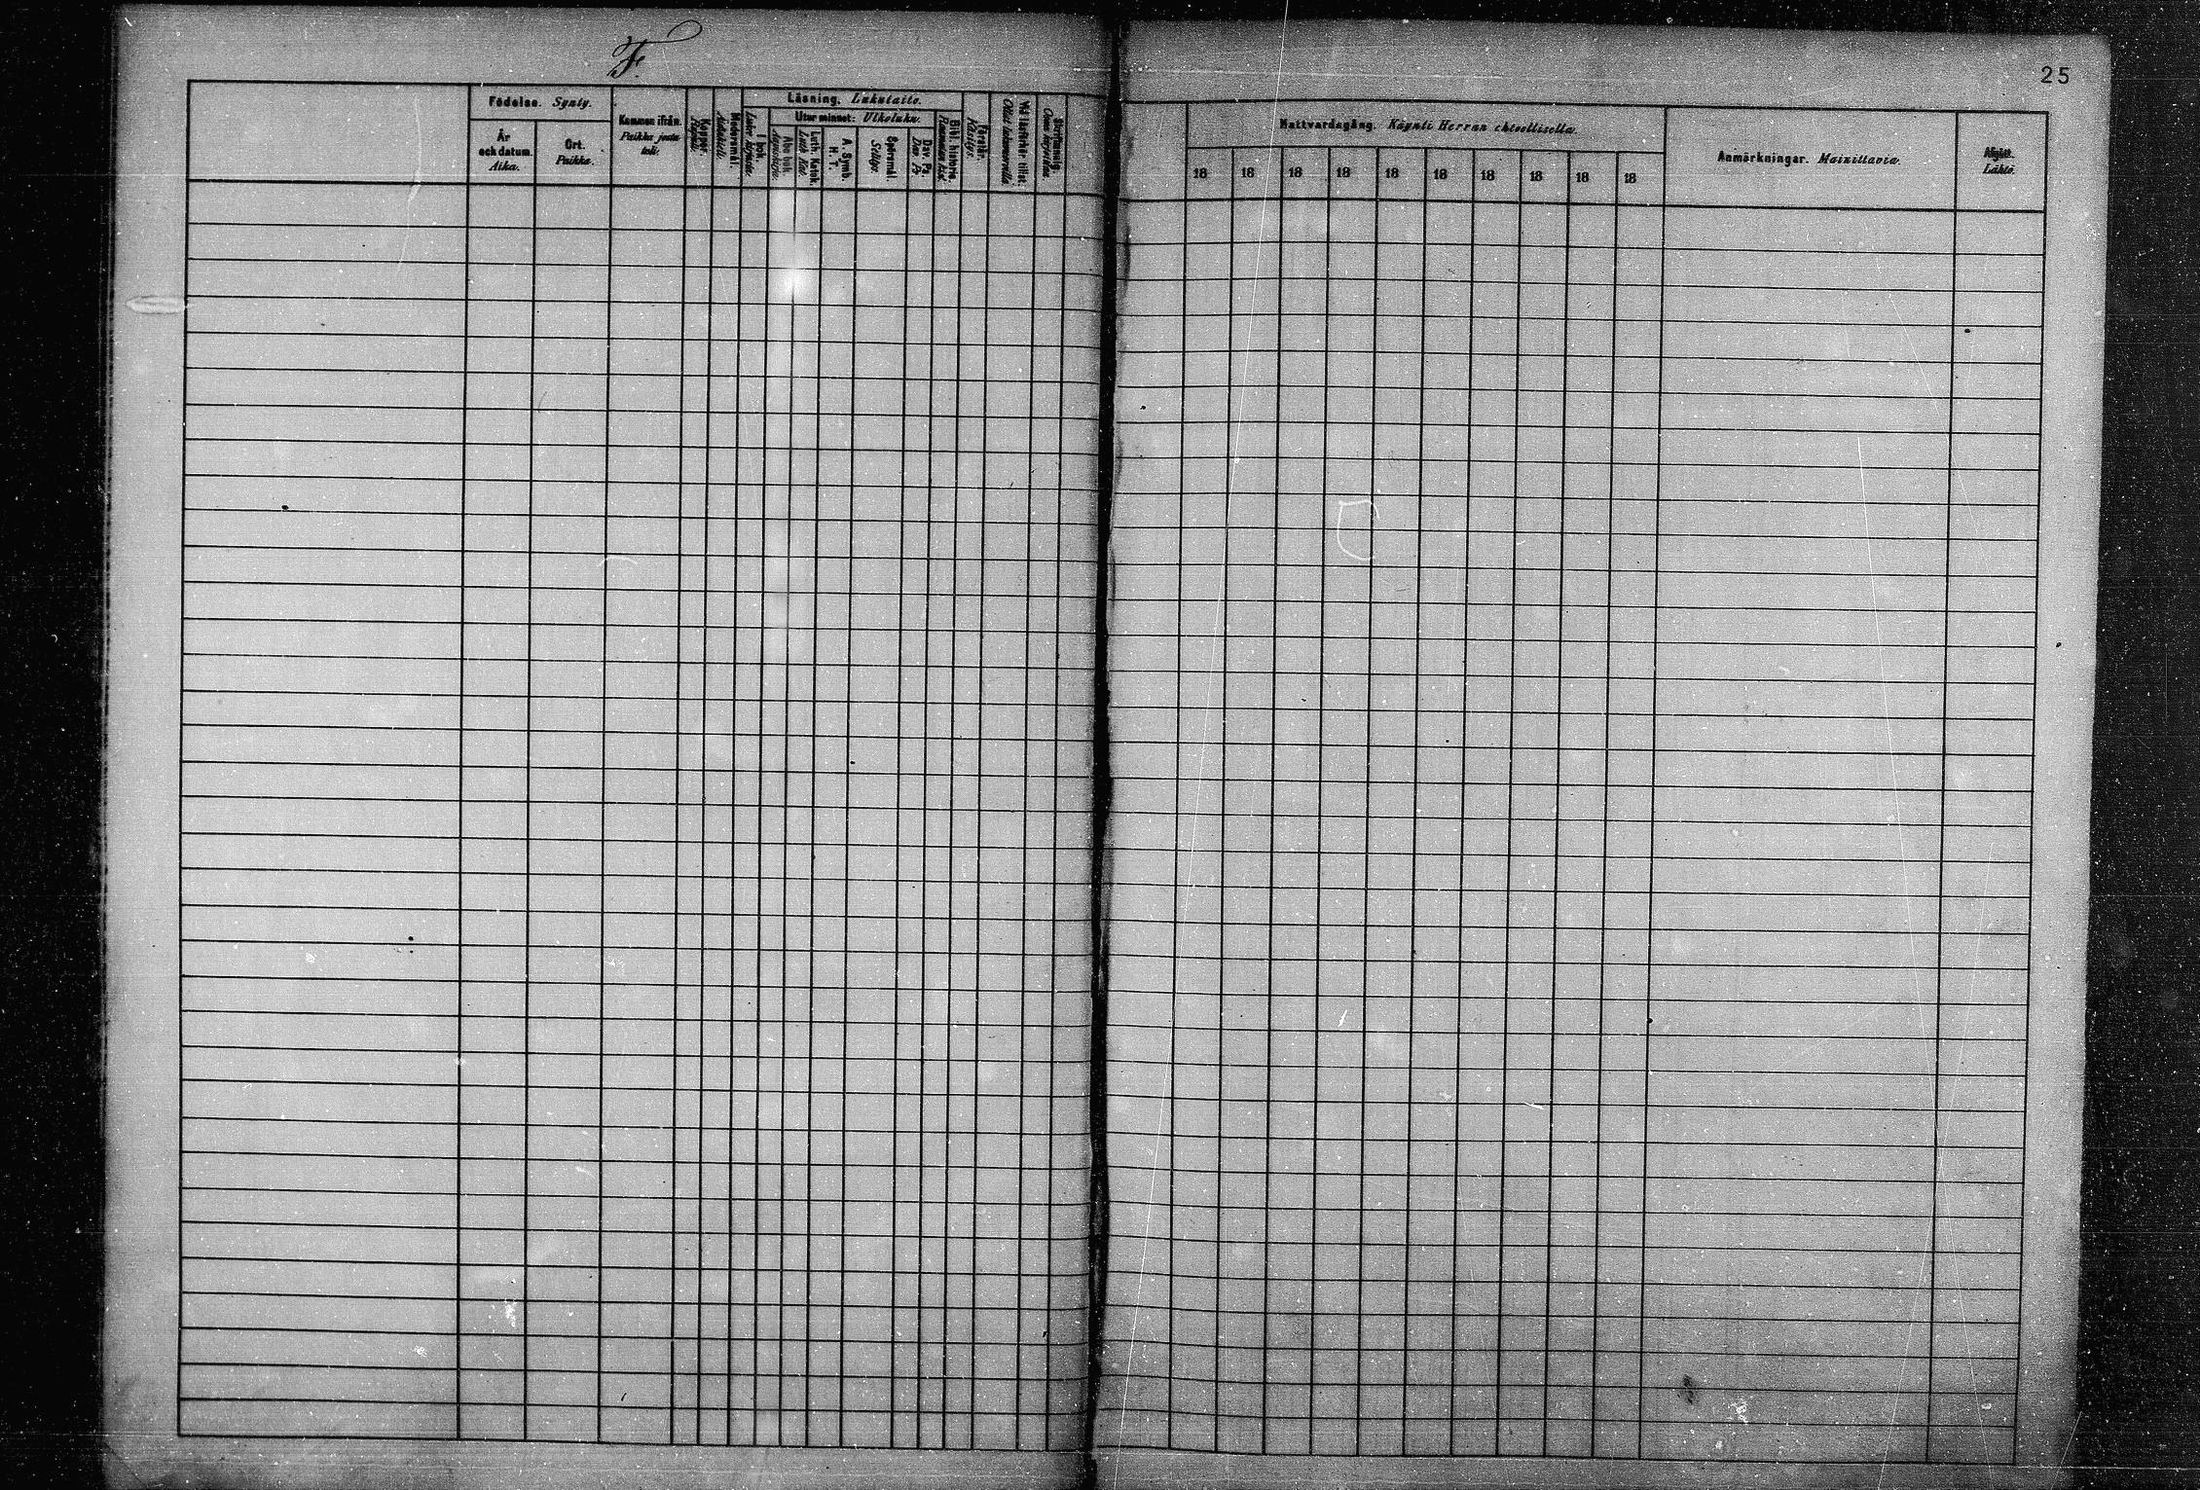 F.
25
Födelse. Synty.
År och datum. Aika.
Ort. Paikka.
Kommen ifrån. Paikka josta tuli.
Koppor. Rupuli.
Modersmål. Äidinkieli.
Läsning. Lukutaito.
I bok. Luku kirjasta.
Utur minnet: Ulkoluku.
Abc bok. Aapiskirja.
Luth. Katek. Luth. Kat.
A. Symb. H. T.
Spörsmål. Selitys.
Dav. Ps. Dav. Ps.
Bibl. historia.
Förstår. Käsitys.
Vid läsförhör tillst.
Skrifkunnig. Osaa kirjoittaa.
Nattvardsgång. Käynti Herran ehtoollisella.
18 18 18 18 18 18 18 18 18 18
Anmärkningar. Muistutuksia.
Afgått. Lähtö.